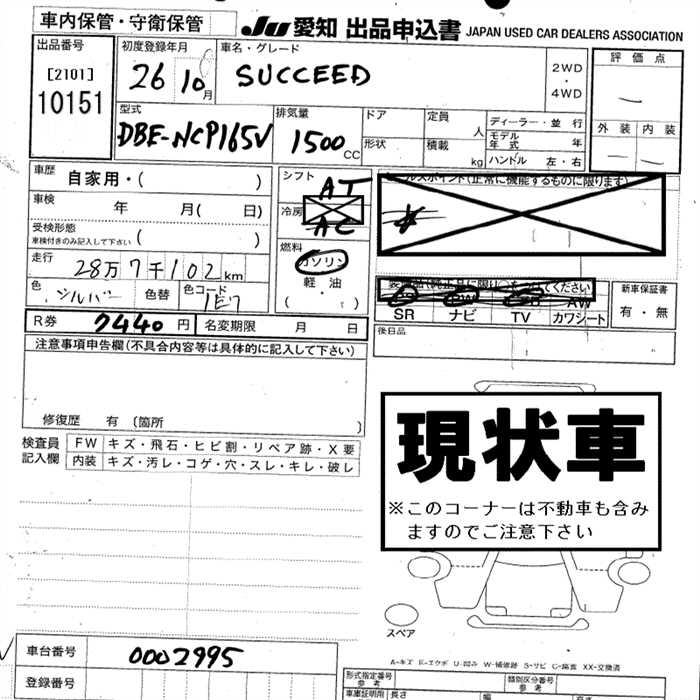 車内保管・守衛保管
JU 愛知 出品申込書 JAPAN USED CAR DEALERS ASSOCIATION
出品番号 [2101] 10151
初度登録年月 26 10月
車名・グレード SUCCEED
2WD・4WD
評価点 —
外装 内装 — —
型式 DBE-NCP165V
排気量 1500CC
ドア 定員 人 ディーラー・並行
形状 積載 kg モデル年式 年
ハンドル 左・右
車歴 自家用・( )
車検 年 月( 日)
受検形態 車検付きのみ記入して下さい ( )
走行 28万7千102km
色 シルバー 色替 色コード 1E7
シフト AT
冷房 AC
燃料 ガソリン 軽油 ( ・ )
(正常に機能するものに限ります)
SR ナビ TV カワシート
AW
新車保証書 有・無
R券 7440円 名変期限 月 日
後日品
注意事項申告欄(不具合内容等は具体的に記入して下さい)
修復歴 有 〔箇所 〕
検査員記入欄
FW キズ・飛石・ヒビ割・リペア跡・X要
内装 キズ・汚レ・コゲ・穴・スレ・キレ・破レ
現状車
※このコーナーは不動車も含み
ますのでご注意下さい
スペア
車台番号 0002995
登録番号
A-キズ E-エクボ U-凹み W-補修跡 S-サビ C-腐食 XX-交換済
形式指定番号 参考 類別区分番号 参考
車庫証明用 長さ 幅 高さ